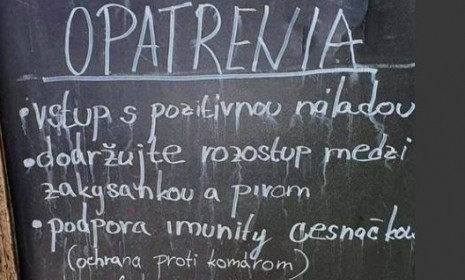 OPATRENIA
• vstup s pozitivnou náladou
• dodržujte rozostup medzi
zakysankou a pivom
• podpora imunity cesnačkou
(ochrana proti komárom)